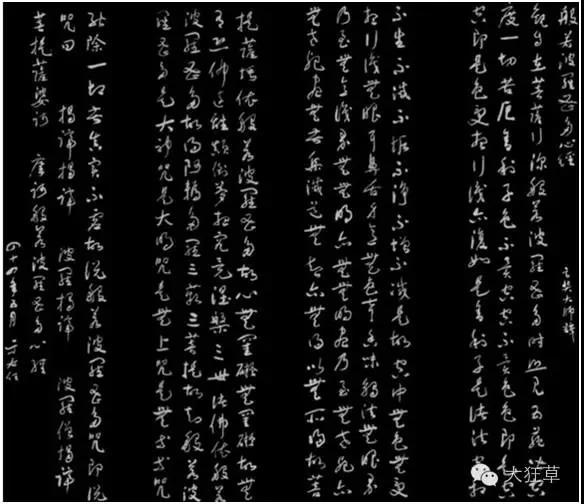 般若波羅蜜多心經
玄奘大師譯
觀自在菩薩行深般若波羅蜜多時照見五蘊皆空
度一切苦厄舍利子色不異空空不異色色即是空
空即是色受想行識亦復如是舍利子是諸法空相
不生不滅不垢不淨不增不減是故空中無色無受
想行識無眼耳鼻舌身意無色聲香味觸法無眼界
乃至無意識界無無明亦無無明盡乃至無老死亦
無老死盡無苦集滅道無智亦無得以無所得故菩
提薩埵依般若波羅蜜多故心無罣礙無罣礙故無
有恐怖遠離顛倒夢想究竟涅槃三世諸佛依般若
波羅蜜多故得阿耨多羅三藐三菩提故知般若波
羅蜜多是大神咒是大明咒是無上咒是無等等咒
能除一切苦真實不虛故說般若波羅蜜多咒即說
咒曰 揭諦揭諦 波羅揭諦 波羅僧揭諦
菩提薩婆訶 摩訶般若波羅蜜多心經
四十四年五月 于右任
大狂草